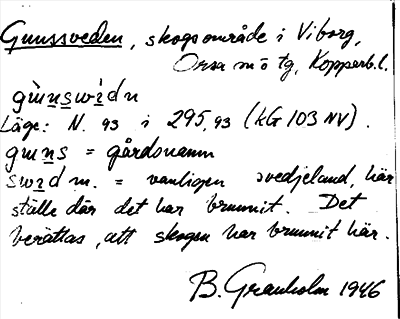 Gunssveden, skogsområde i Viborg,
Orsa m o tg, Kopperb.l.
gùnswìdn
Läge: N. 93 i 295,93 (kG 103 NV).
guns = gårdsnamn
swìd m. = vanligen svedjeland, här
ställe där det har brunnit. Det
berättas, att skogen har brunnit här.
B. Granholm 1946